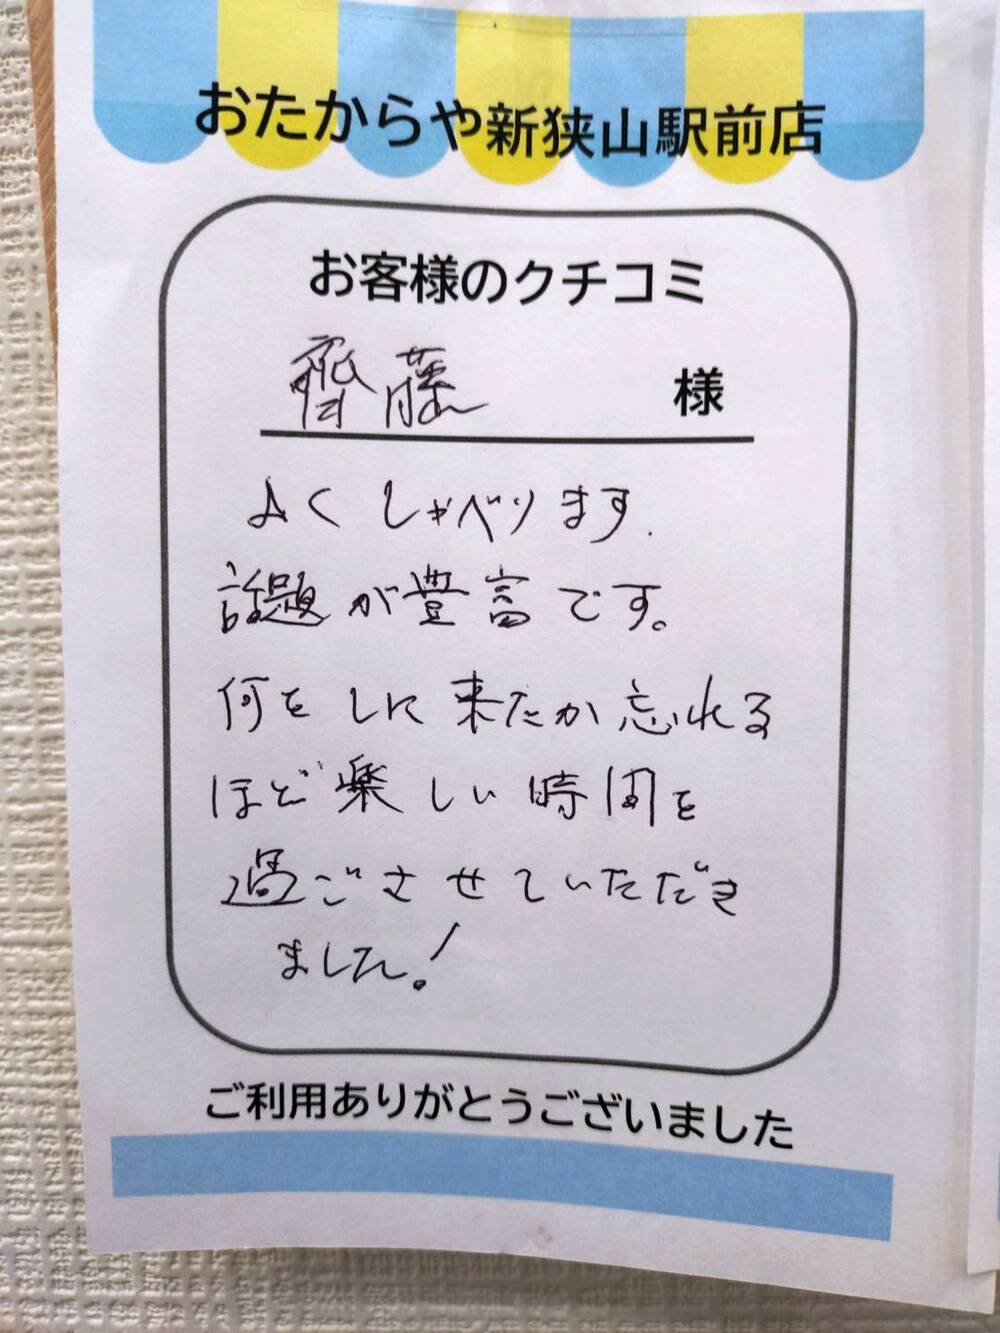 おたからや新狭山駅前店
お客様のクチコミ
齊藤 様
よくしゃべります.
話題が豊富です。
何をしに来たか忘れる
ほど楽しい時間を
過ごさせていただき
ました!
ご利用ありがとうございました